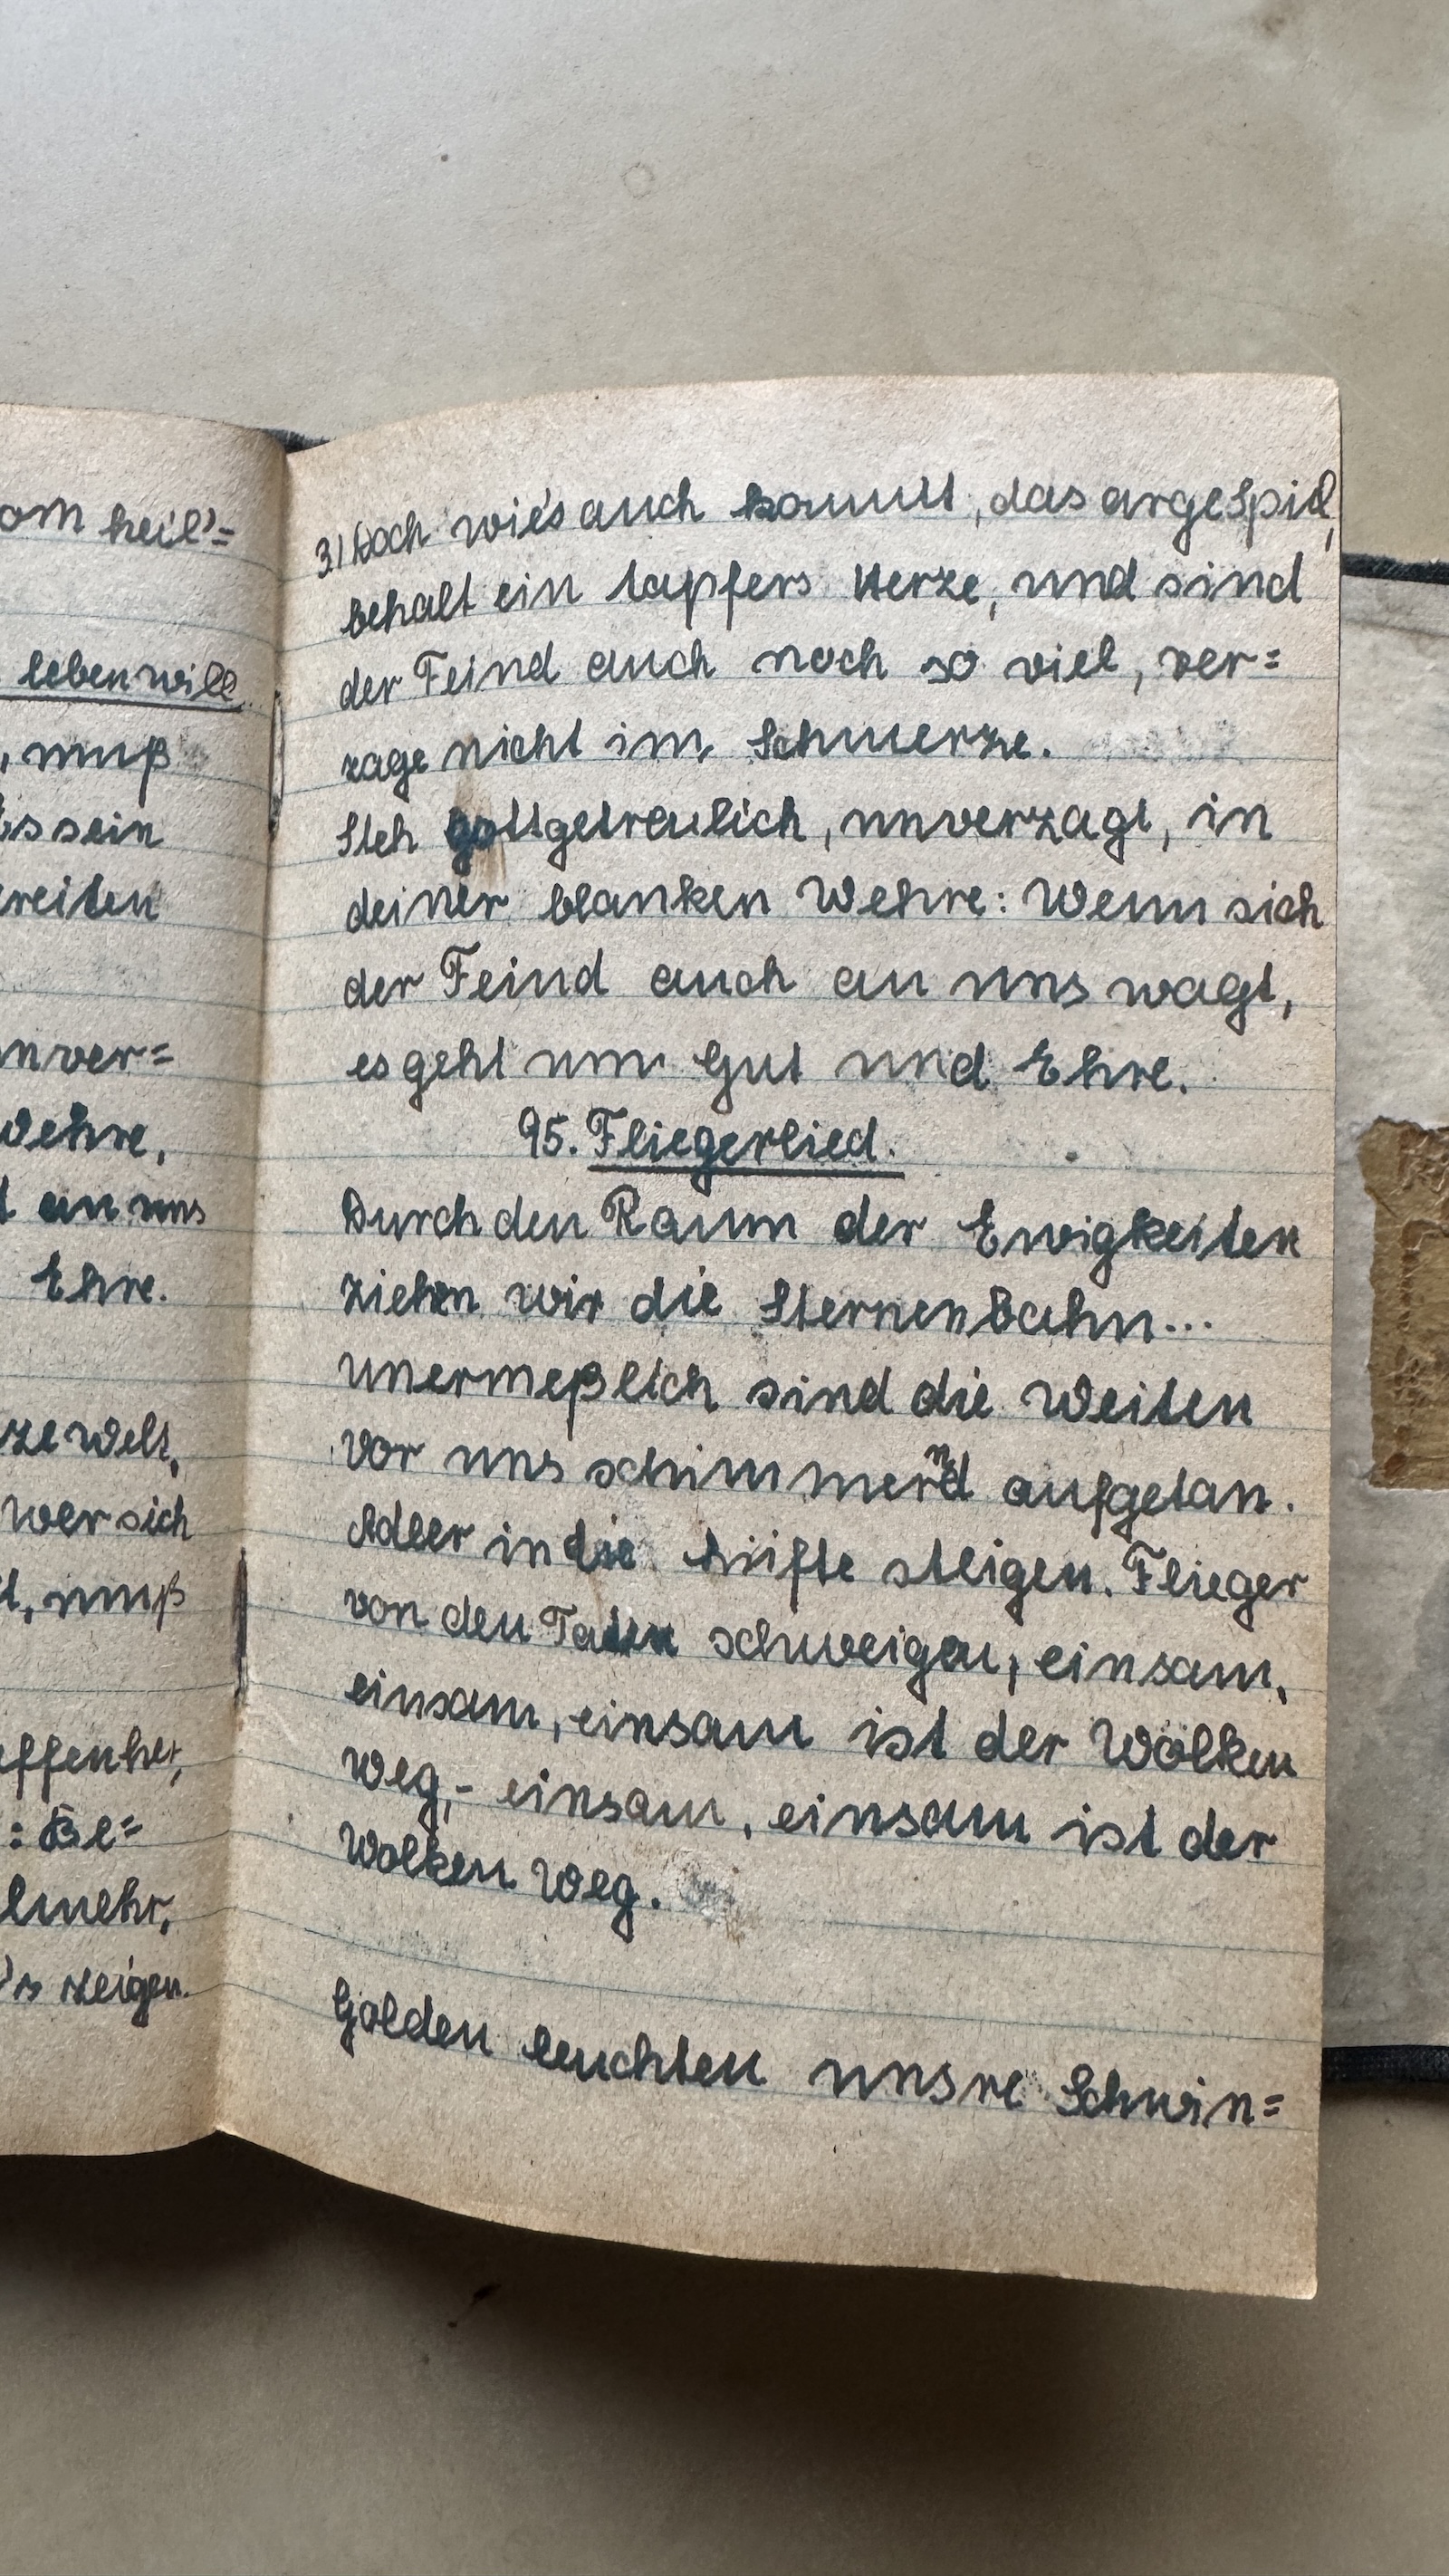 om heil'=
lebenwill.
, muß
sein
reiten
unver=
Wehre,
an uns
Ehre.
ze Welt,
wer sich
, muß
affenher,
: Be=
lmehr,
's zeigen.
3.) Doch wie's auch kommt, das arge Spiel,
behalt ein tapfers Herze, und sind
der Feind auch noch so viel, ver=
zage nicht im Schmerze.
Steh gottgetreulich, unverzagt, in
deiner blanken Wehre: Wenn sich
der Feind auch an uns wagt,
es geht um Gut und Ehre.
95. Fliegerlied.
Durch den Raum der Ewigkeiten
ziehen wir die Sternenbahn...
unermeßlich sind die Weiten
vor uns schimmernd aufgetan.
Adler in die Lüfte steigen. Flieger
von den Taten schweigen, einsam,
einsam, einsam ist der Wolken
Weg,- einsam, einsam ist der
Wolken Weg.
Golden leuchten unsre Schwin=